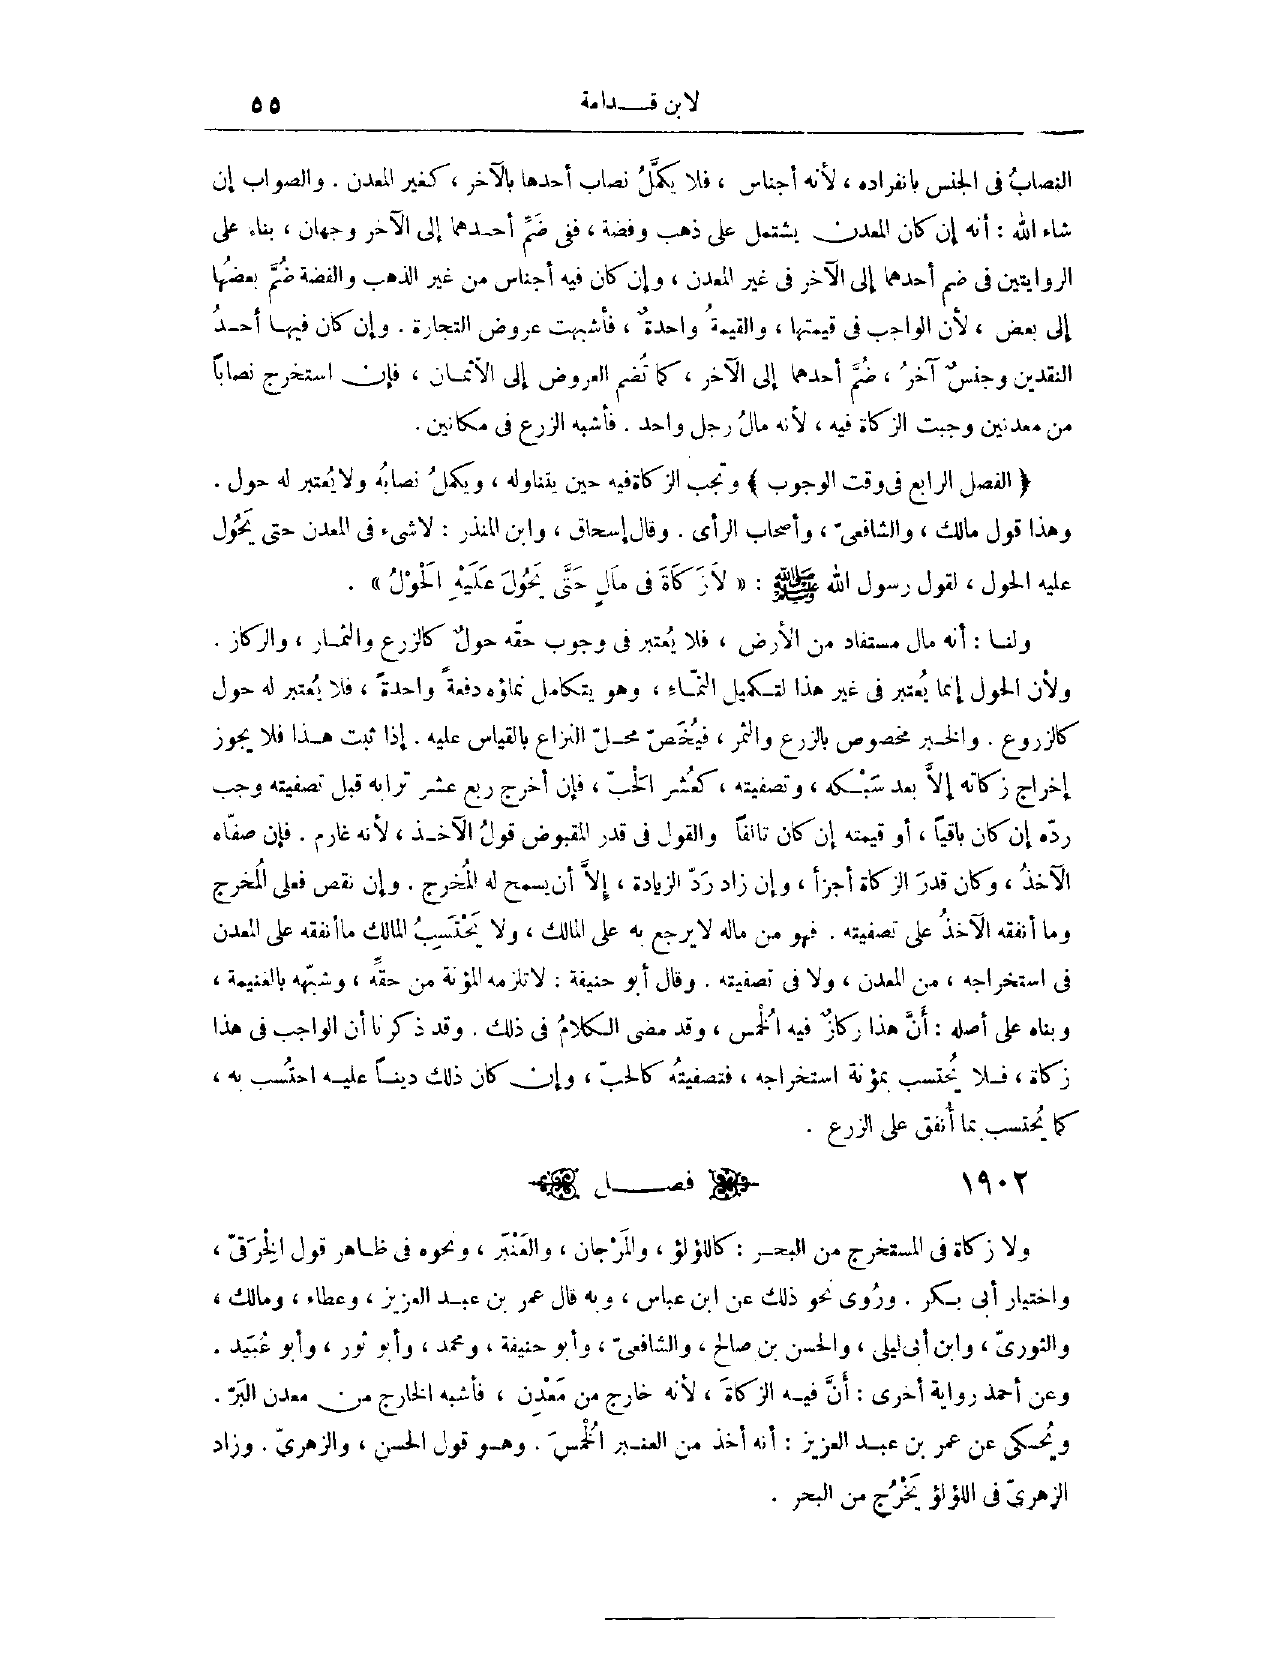 لابن قدامة ٥٥
النصابُ فى الجنس بانفراده ، لأنه أجناس ، فلا يكمَّلُ نصاب أحدها بالآخر ، كغير المعدن . والصواب إن
شاء الله : أنه إن كان المعدن يشتمل على ذهب وفضة ، ففى ضَمِّ أحدهما إلى الآخر وجهان ، بناء على
الروايتين فى ضم أحدهما إلى الآخر فى غير المعدن ، وإن كان فيه أجناس من غير الذهب والفضة ضُمَّ بعضُها
إلى بعض ، لأن الواجب فى قيمتها ، والقيمةُ واحدةٌ ، فأشبهت عروض التجارة . وإن كان فيها أحدُ
النقدين وجنسٌ آخرُ ، ضُمَّ أحدهما إلى الآخر ، كما تُضم العروض إلى الأثمان ، فإن استخرج نصاباً
من معدنين وجبت الزكاة فيه ، لأنه مالُ رجل واحد . فأشبه الزرع فى مكانين .
﴿ الفصل الرابع فى وقت الوجوب ﴾ وتجب الزكاة فيه حين يتناوله ، ويكملُ نصابُه ولا يُعتبر له حول .
وهذا قول مالك ، والشافعىّ ، وأصحاب الرأى . وقال إسحاق ، وابن المنذر : لا شىء فى المعدن حتى يَحُول
عليه الحول ، لقول رسول الله ﷺ : « لاَ زَكَاةَ فى مَالٍ حَتَّى يَحُولَ عَلَيْهِ الَحْوْلُ » .
ولنا : أنه مال مستفاد من الأرض ، فلا يُعتبر فى وجوب حقّه حولٌ كالزرع والثمار ، والركاز .
ولأن الحول إنما يُعتبر فى غير هذا لتكميل النمّاء ، وهو يتكامل نماؤه دفعةً واحدةً ، فلا يُعتبر له حول
كالزروع . والخبر مخصوص بالزرع والثمر ، فيُخَصّ محلّ النزاع بالقياس عليه . إذا ثبت هذا فلا يجوز
إخراج زكاته إلاَّ بعد سَبْكه ، وتصفيته ، كعُشر الَحْبّ ، فإن أخرج ربع عشر ترابه قبل تصفيته وجب
ردّه إن كان باقياً ، أو قيمته إن كان تالفاً والقول فى قدر المقبوض قولُ الآخذ ، لأنه غارم . فإن صفّاه
الآخذُ ، وكان قدرَ الزكاة أجزأ ، وإن زاد رَدّ الزيادة ، إلاَّ أن يسمح له المُخرج . وإن نقص فعلى المُخرج
وما أنفقه الآخذُ على تصفيته . فهو من ماله لا يرجع به على المالك ، ولا يَحْتَسِبُ المالك ما أنفقه على المعدن
فى استخراجه ، من المعدن ، ولا فى تصفيته . وقال أبو حنيفة : لا تلزمه المؤنة من حقِّه ، وشبّهه بالغنيمة ،
وبناه على أصله : أنَّ هذا ركازٌ فيه الُخْمس ، وقد مضى الكلامُ فى ذلك . وقد ذكرنا أن الواجب فى هذا
زكاة ، فلا يُحتسب بمؤنة استخراجه ، فتصفيتُه كالحبّ ، وإن كان ذلك ديناً عليه احتُسب به ،
كما يُحتسب بما أُنفق على الزرع .
١٩٠٢ فصل
ولا زكاة فى المستخرج من البحر : كاللؤلؤ ، والمَرْجان ، والعَنْبَر ، ونحوه فى ظاهر قول الِخْرَقىّ ،
واختيار أبى بكر . ورُوى نحو ذلك عن ابن عباس ، وبه قال عمر بن عبد العزيز ، وعطاء ، ومالك ،
والثورىّ ، وابن أبى ليلى ، والحسن بن صالح ، والشافعىّ ، وأبو حنيفة ، ومحمد ، وأبو ثور ، وأبو عُبَيد .
وعن أحمد رواية أخرى : أنَّ فيه الزكاةَ ، لأنه خارج من مَعْدِن ، فأشبه الخارج من معدن البَرّ .
ويُحكى عن عمر بن عبد العزيز : أنه أخذ من العنبر الُخْمسَ . وهو قول الحسن ، والزهرىّ . وزاد
الزهرىّ فى اللؤلؤ يَخْرُج من البحر .